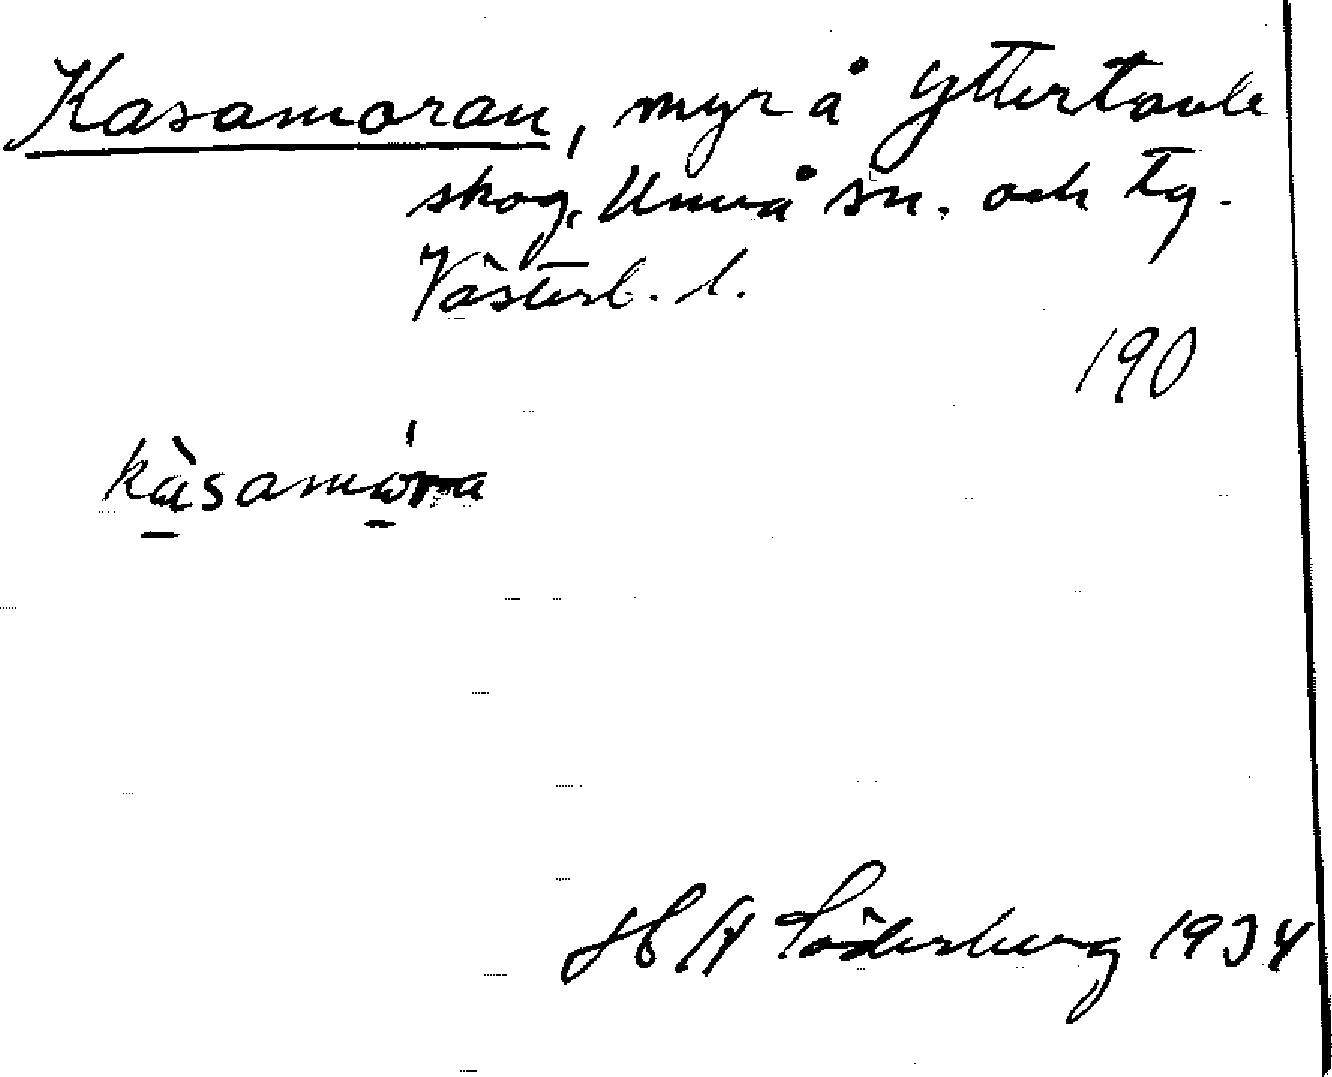 Kasamoran, myr å Yttertavle
skog, Umeå sn. och tg.
Västerb. l.
190
kàsamóra
H A Söderberg 1934